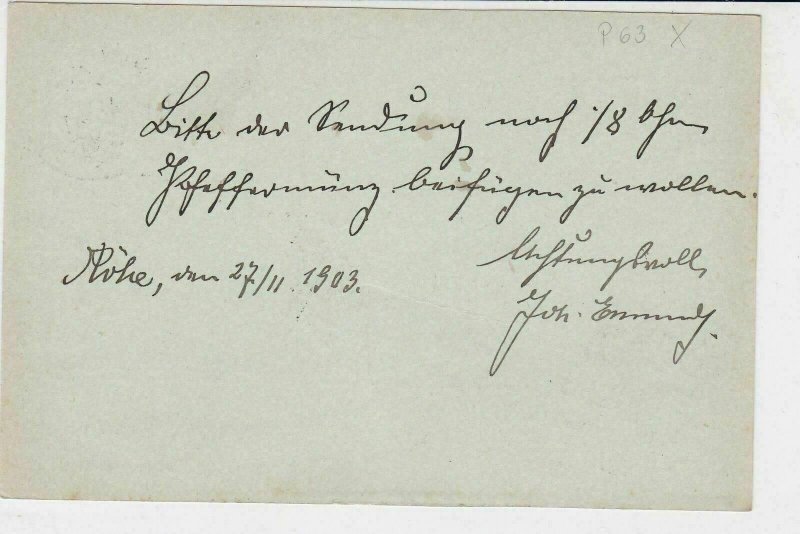 P 63 X
Bitte der Sendung noch 1/8 Ohm
Pfeffermünz beifügen zu wollen.
Achtungsvoll
Röhe, den 27/11 1903.
Joh.